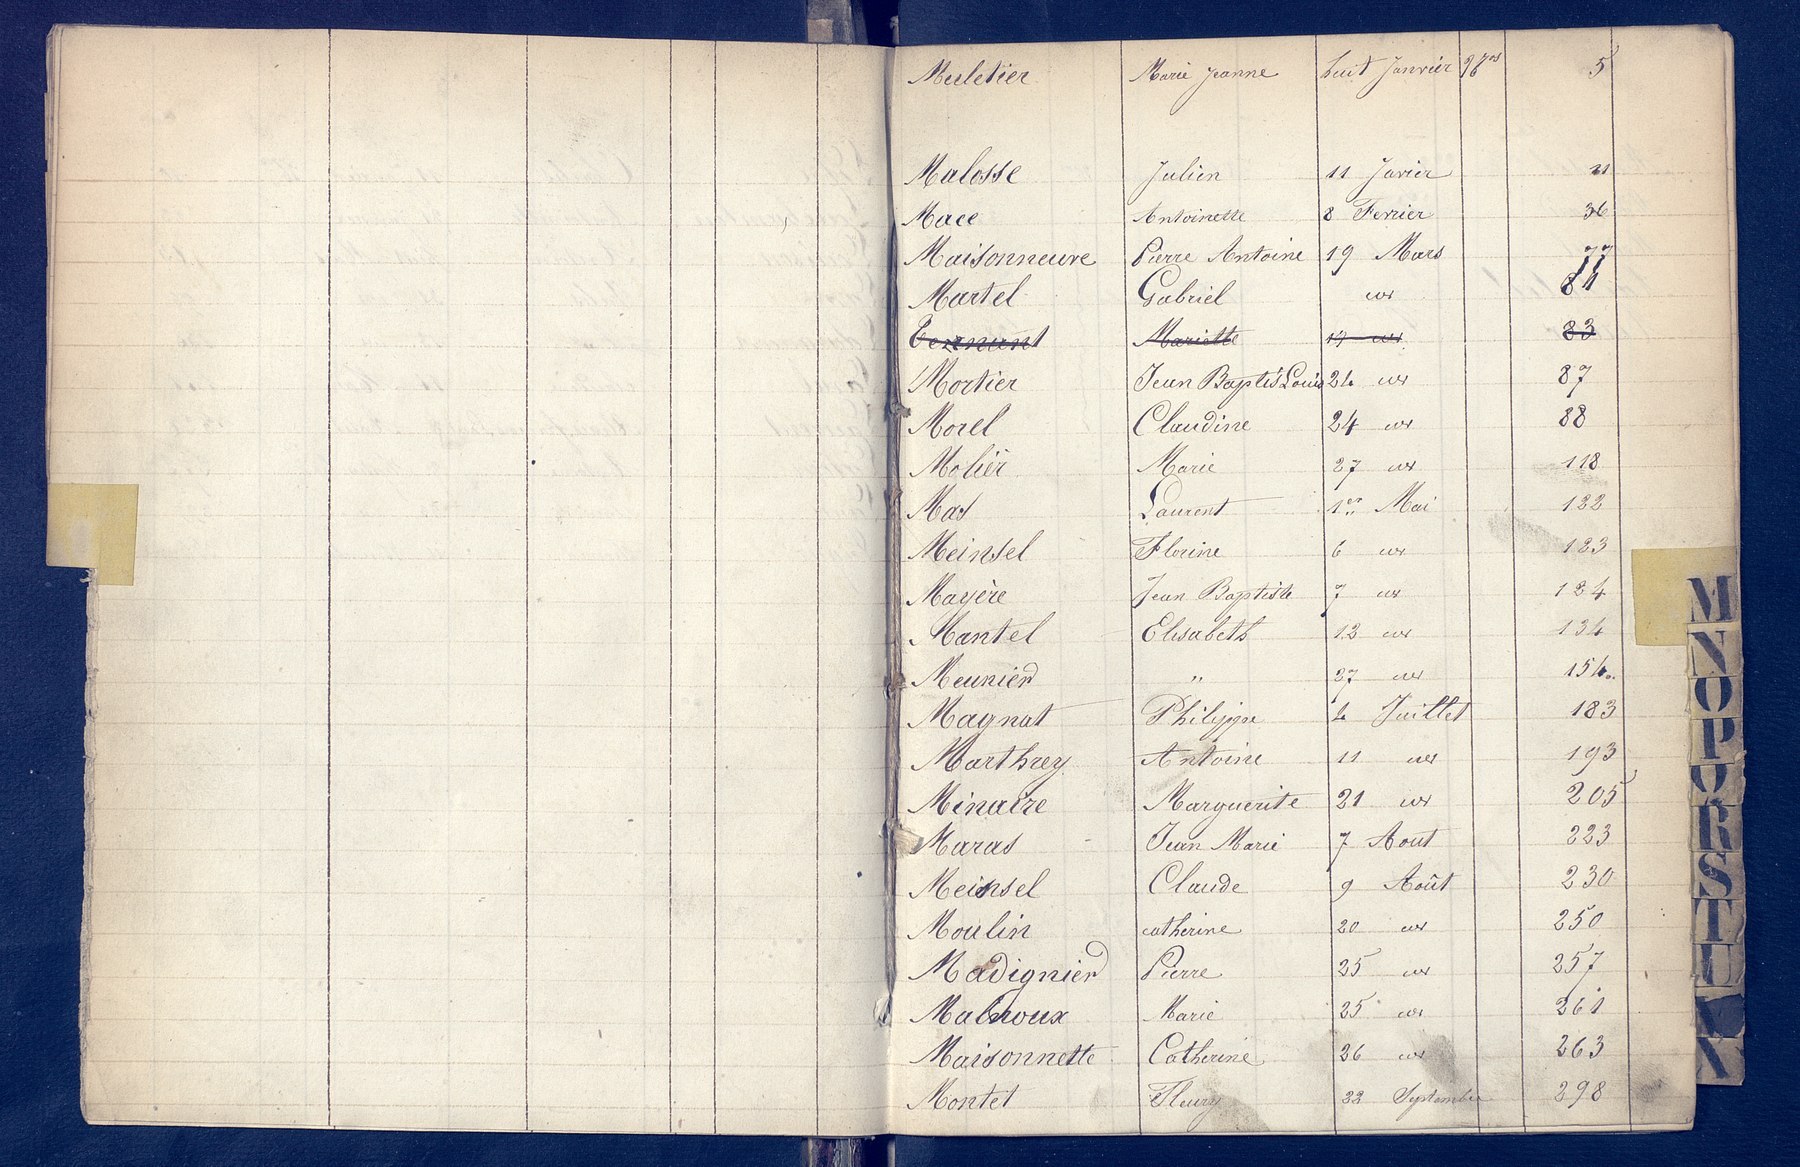 Muletier Marie Jeanne huit Janvier 5
Malosse Julien 11 Javier 21
Mace Antoinette 8 Ferrier 36
Maisonneuve Pierre Antoine 19 Mars 77
Martel Gabriel
Mariette 19 83
Mortier Jean Baptis Louis 24 87
Morel Claudine 24 88
Molier Marie 27 118
Mas Laurent 1er Mai 122
Meinsel Florine 6 123
Mayère Jean Baptiste 7 124
Mantel Elisabeth 12 134
Meunier " 27 154
Magnat Philippe 4 Juillet 183
Marthrey Antoine 11 193
Minaire Marguerite 21 205
Maras Jean Marie 7 Aout 223
Meinsel Claude 9 Août 230
Moulin catherine 20 250
Madignier Pierre 25 257
Malhoux Marie 25 261
Maisonnette Catherine 26 263
Montet Fleury 22 Septembre 298
M
N
O
P
Q
R
S
T
U
V
X